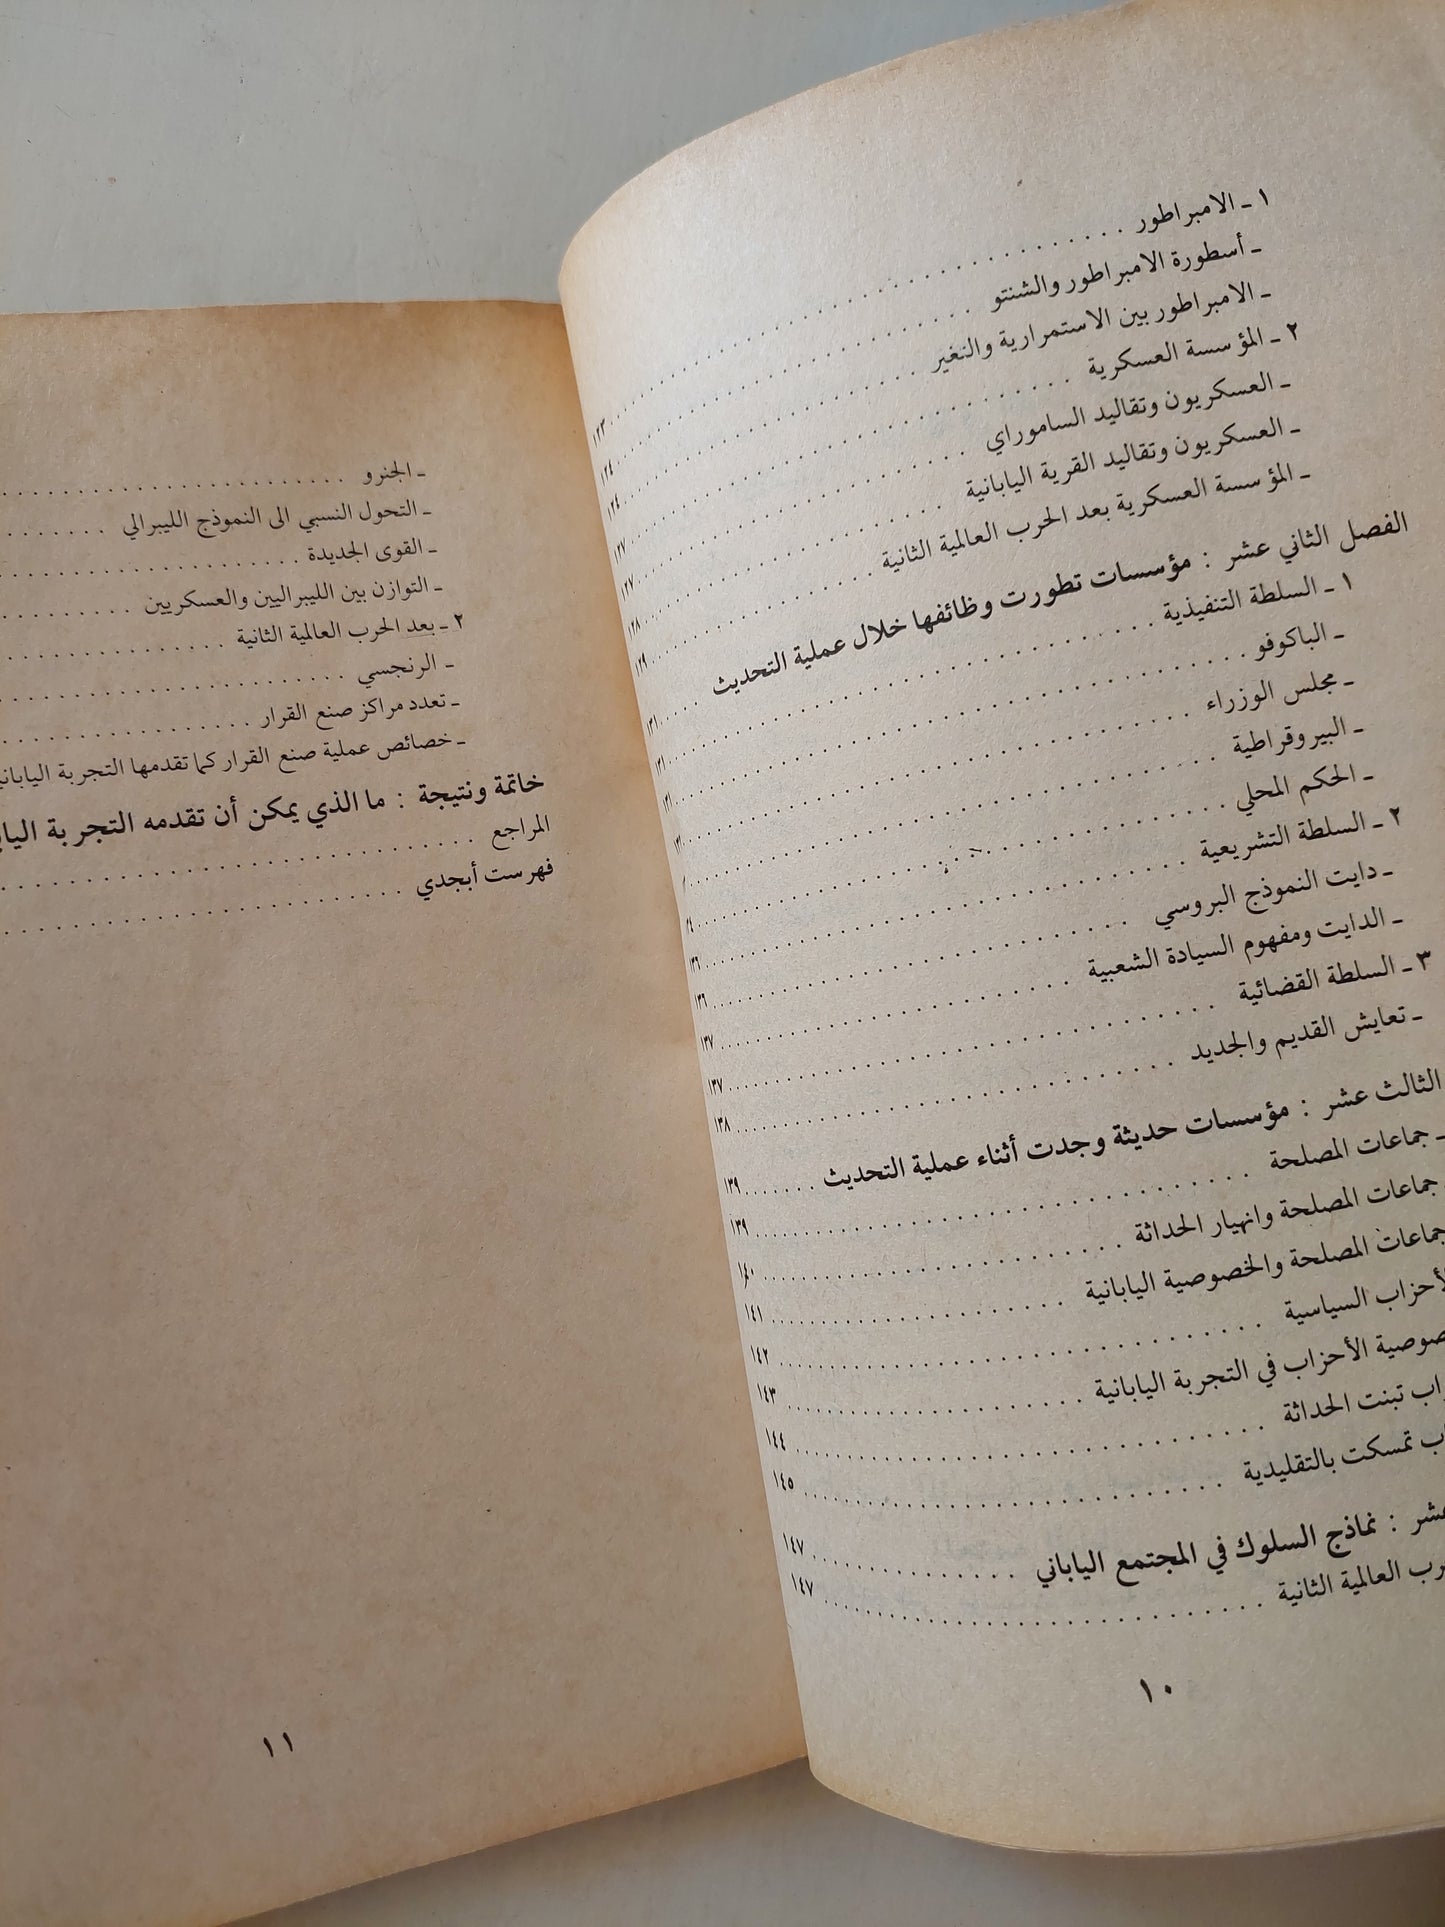 ١ ـ الامبراطور . . . . . . . . . . ١٢٣
ـ أسطورة الامبراطور والشنتو . . . . . . . . . . ١٢٤
ـ الامبراطور بين الاستمرارية والتغير . . . . . . . . . . ١٢٤
٢ ـ المؤسسة العسكرية . . . . . . . . . . ١٢٧
ـ العسكريون وتقاليد الساموراي . . . . . . . . . . ١٢٧
ـ العسكريون وتقاليد القرية اليابانية . . . . . . . . . . ١٢٨
ـ المؤسسة العسكرية بعد الحرب العالمية الثانية . . . . . . . . . . ١٢٩
الفصل الثاني عشر : مؤسسات تطورت وظائفها خلال عملية التحديث . . . . . ١٣١
١ ـ السلطة التنفيذية . . . . . . . . . . ١٣١
ـ الباكوفو . . . . . . . . . .
ـ مجلس الوزراء . . . . . . . . . .
ـ البيروقراطية . . . . . . . . . .
ـ الحكم المحلي . . . . . . . . . .
٢ ـ السلطة التشريعية . . . . . . . . . . ١٣٦
ـ دايت النموذج البروسي . . . . . . . . . . ١٣٦
ـ الدايت ومفهوم السيادة الشعبية . . . . . . . . . . ١٣٧
٣ ـ السلطة القضائية . . . . . . . . . . ١٣٧
ـ تعايش القديم والجديد . . . . . . . . . . ١٣٨
الثالث عشر : مؤسسات حديثة وجدت أثناء عملية التحديث . . . . . . . ١٣٩
ـ جماعات المصلحة . . . . . . . . . . ١٣٩
جماعات المصلحة وانهيار الحداثة . . . . . . . . . . ١٤٠
جماعات المصلحة والخصوصية اليابانية . . . . . . . . . . ١٤١
الأحزاب السياسية . . . . . . . . . . ١٤٢
صوصية الأحزاب في التجربة اليابانية . . . . . . . . . . ١٤٣
اب تبنت الحداثة . . . . . . . . . . ١٤٤
ب تمسكت بالتقليدية . . . . . . . . . . ١٤٥
عشر : نماذج السلوك في المجتمع الياباني . . . . . . . . . . ١٤٧
رب العالمية الثانية . . . . . . . . . . ١٤٧
١٠
ـ الجنرو . . . . . . . . . .
ـ التحول النسبي الى النموذج الليبرالي . . . . . . . .
ـ القوى الجديدة . . . . . . . . . .
ـ التوازن بين الليبراليين والعسكريين . . . . . . .
٢ ـ بعد الحرب العالمية الثانية . . . . . . . . . .
ـ الرنجسي . . . . . . . . . .
ـ تعدد مراكز صنع القرار . . . . . . . . . .
ـ خصائص عملية صنع القرار كما تقدمها التجربة الياباني
خاتمة ونتيجة : ما الذي يمكن أن تقدمه التجربة اليا
المراجع . . . . . . . . . .
فهرست أبجدي . . . . . . . . . .
١١